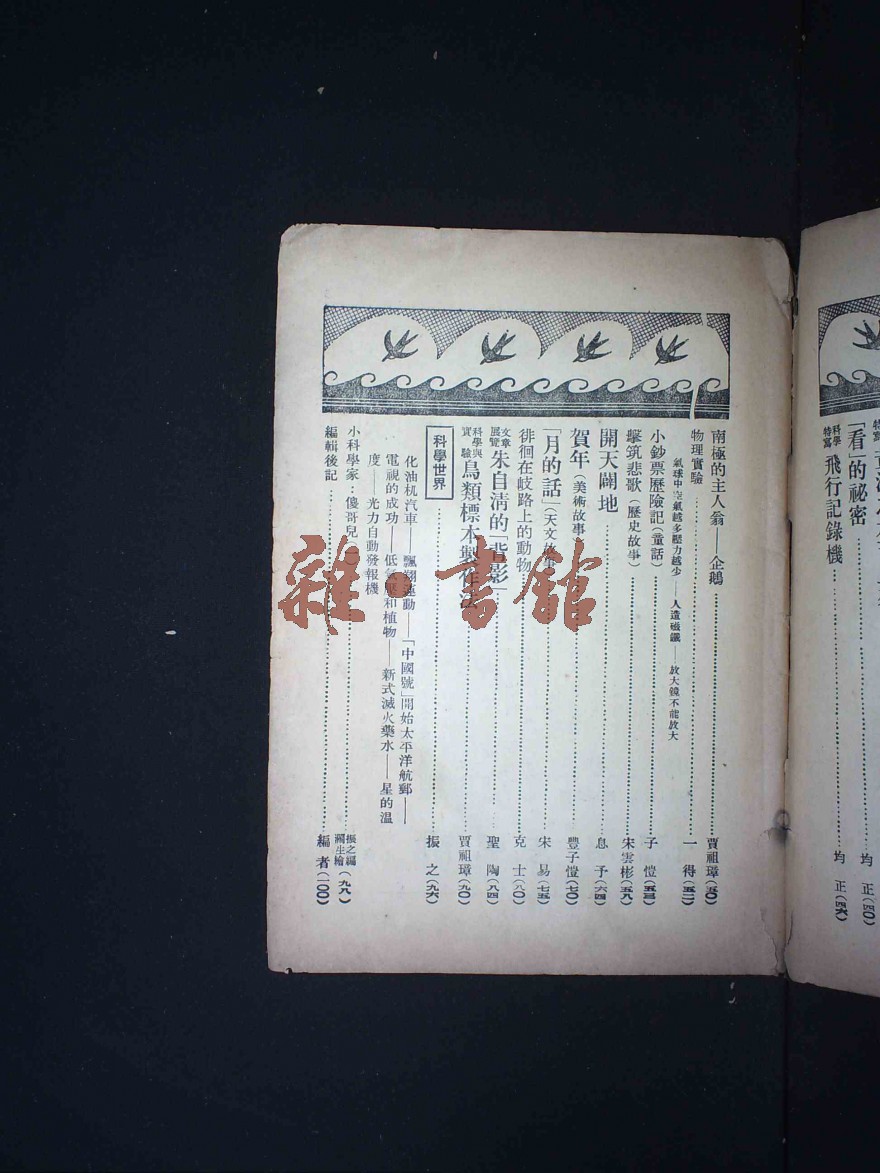 特寫
「看」的祕密 均正(四〇)
科學特寫 飛行記錄機 均正(四六)
南極的主人翁——企鵝 賈祖璋(五〇)
物理實驗 一得(五二)
氣球中空氣越多壓力越少——人造磁鐵——放大鏡不能放大
小鈔票歷險記(童話) 子愷(五三)
擊筑悲歌(歷史故事) 宋雲彬(五九)
開天闢地 息予(六四)
賀年(美術故事) 豐子愷(七〇)
「月的話」(天文故事) 宋易(七五)
徘徊在歧路上的動物 克士(八〇)
文章展覽 朱自清的「背影」 聖陶(八四)
科學與實驗 鳥類標本製作法 賈祖璋(九〇)
科學世界 振之(九六)
化油机汽車——飄翔運動——「中國號」開始太平洋航郵——
電視的成功——低氣壓和植物——新式滅火藥水——星的溫
度——光力自動發報機
小科學家:傻哥兒(一) 振之編(九八)
編輯後記 編者(一〇〇)
雜書館